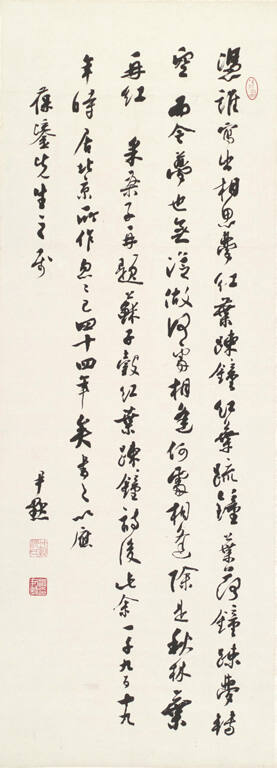 憑誰寫出相思夢紅葉踈鐘紅葉疏鐘葉落鐘踈夢轉
空而今夢也無從做何處相逢何處相逢除是秋林葉
再紅 采桑子再題蘇子穀紅葉踈鐘詩後此余一千九百十九
年時居北京所作忽忽已四十四年矣書之以應
葆鎏先生之屬
尹默